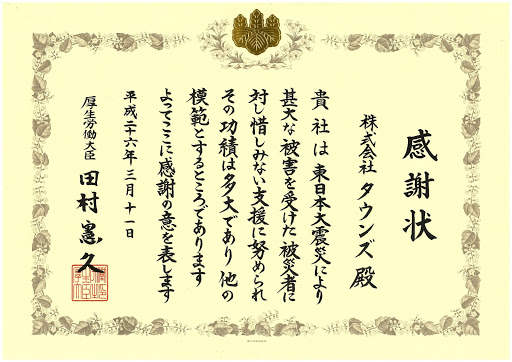 感謝状
株式会社 タウンズ 殿
貴社は東日本大震災により
甚大な被害を受けた被災者に
対し惜しみない支援に努められ
その功績は多大であり他の
模範とするところであります
よってここに感謝の意を表します
平成二十六年三月十一日
厚生労働大臣 田村憲久